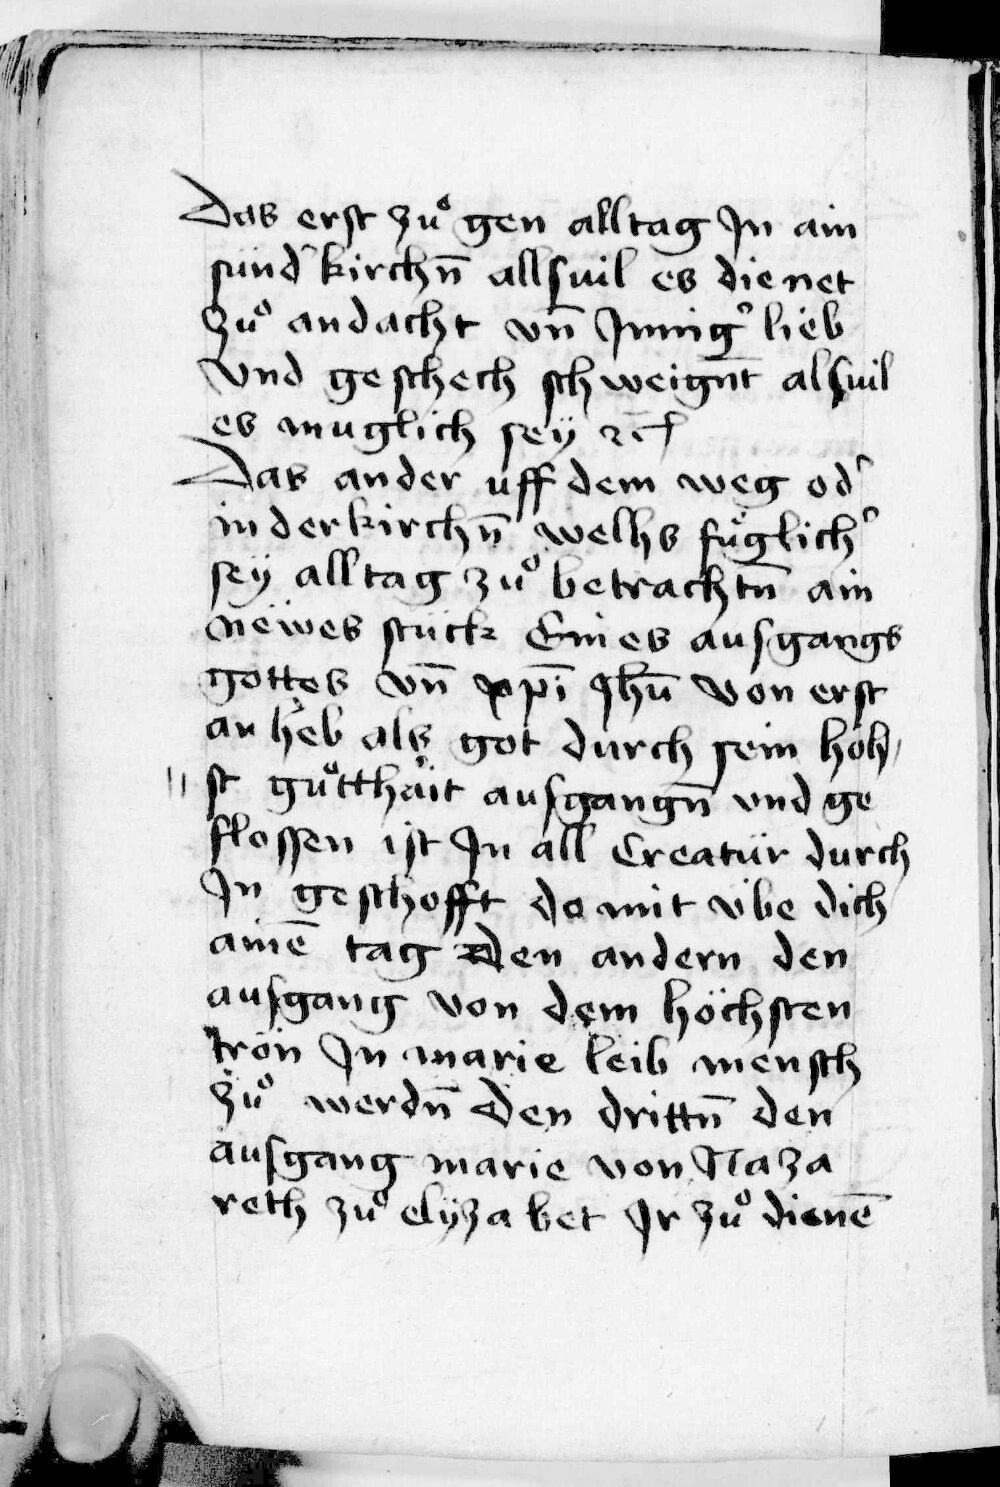 Das erst zuͦ gen alltag Jn ain
sünd' kirchn̄ allsuil es dienet
zuͦ andacht vn̄ Jnnig' lieb
vnd geschech schweign̄t alsuil
es muglich sey ⁊c̄
Das ander uff dem weg od'
in der kirchn̄ welhs fuͤglich'
sey alltag zuͦ betrachtn̄ ain
nëwes stück Eines ausgangs
gottes vn̄ xp̄i Jhū von erst
an heb als got durch sein höh,
st guͤtthäit ausgangn̄ vnd ge
flossen ist Jn all Creatür durch
Jn geschofft do mit v̈be dich
ainē tag Den andern den
ausgang von dem höchsten
tron Jn marie leib mensch
zuͦ werdn̄ Den drittn̄ den
ausgang marie von Naza
reth zuͦ elÿzabet Jr zuͦ dienē